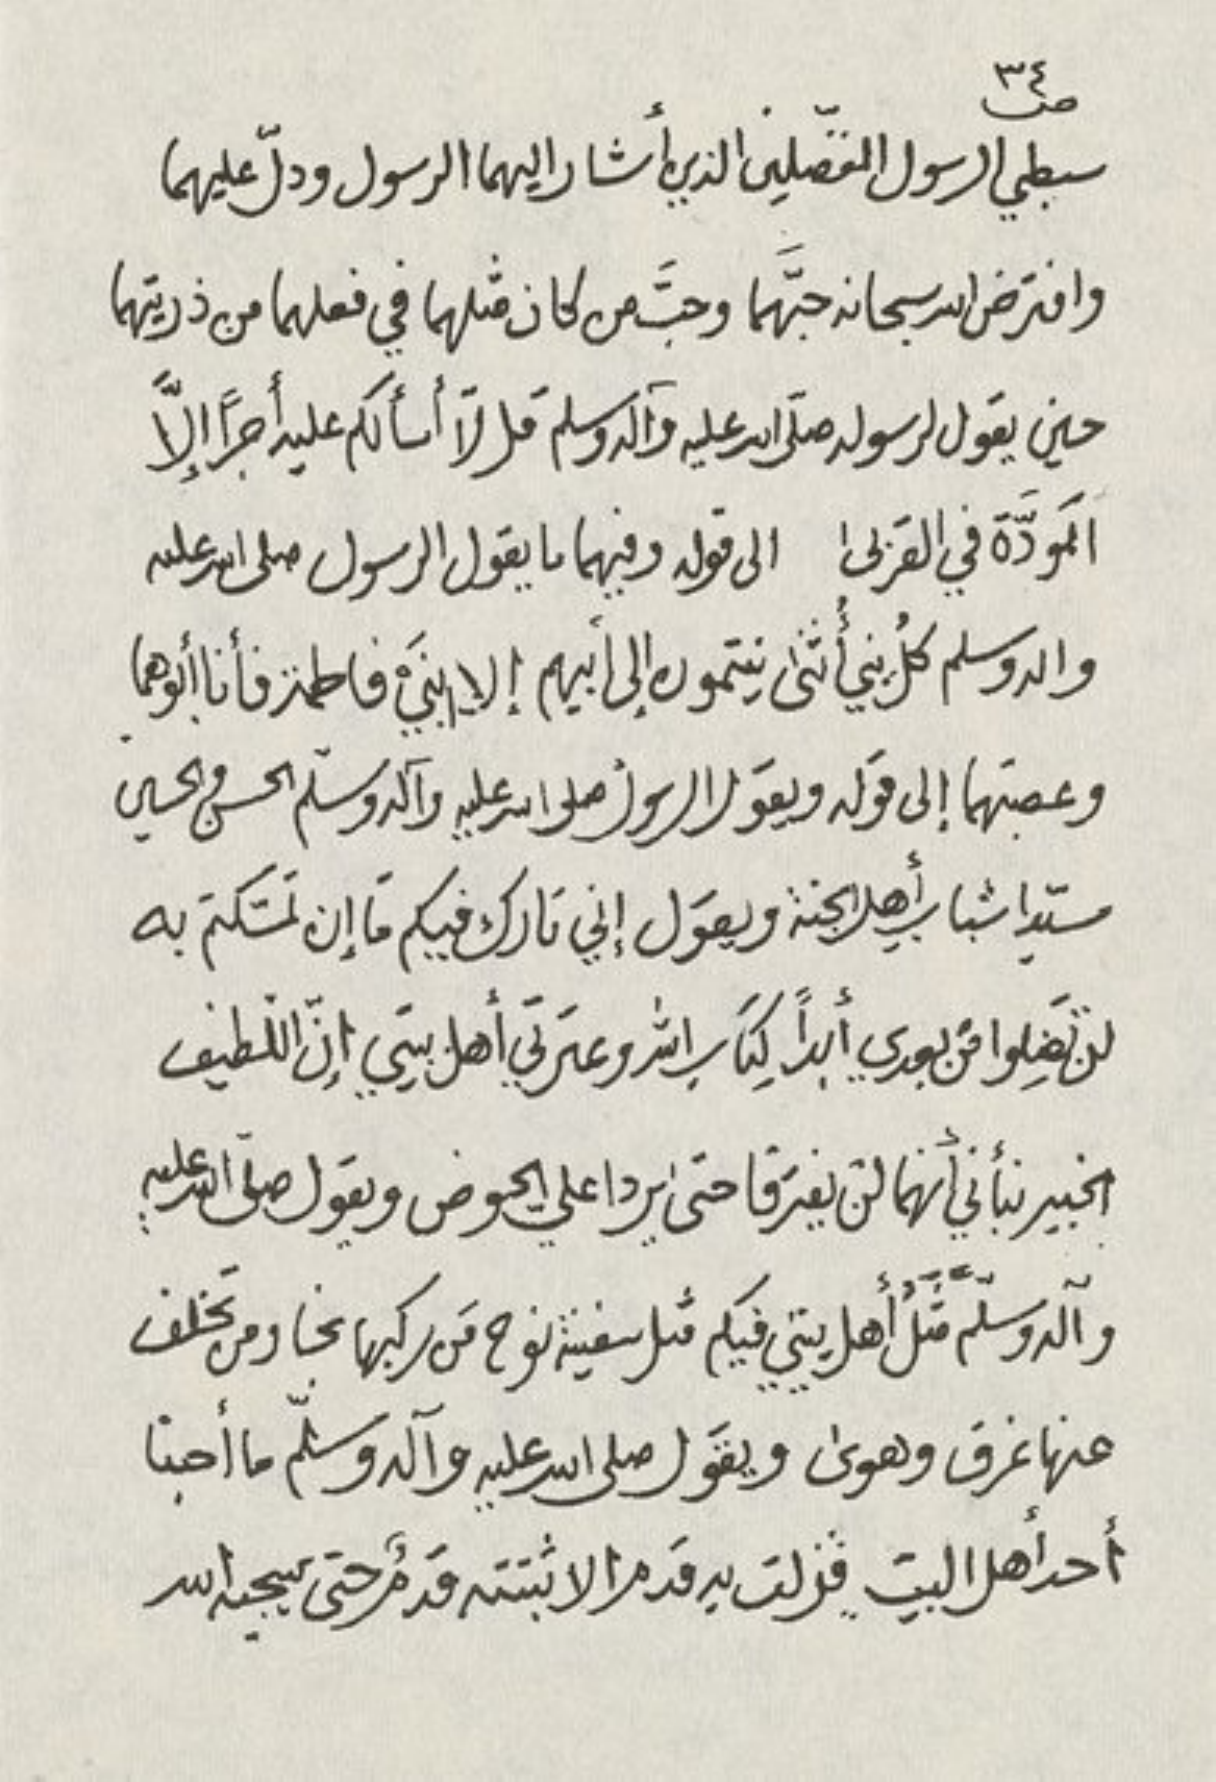 ص ٣٤
سبطي الرسول المفضّلين الذين أشار اليهما الرسول ودلّ عليهما
وافترض الله سبحانه حبَّهما وحبَّ من كان مثلهما في فعلهما من ذريتهما
حين يقول لرسوله صلى الله عليه وآله وسلم قل لّا أسألكم عليه أجرًا إلَّا
المَودَّة في القربى الى قوله وفيهما ما يقول الرسول صلى الله عليه
واله وسلم كلُ بني أُنثى ينتمون إلى أبيهم إلا ابنَيْ فاطمة فأنا أبوهما
وعصبتهما إلى قوله ويقول الرسول صلى الله عليه وآله وسلّم الحسن والحسين
سيّدا شباب أهل الجنة ويقول إني تارك فيكم ما إن تمسّكتم به
لن تَضِلوا من بعدي أبداً كِتَاب الله وعترتي أهل بيتي إنّ اللّطيف
الخبير نبأني أنهما لن يفترقا حتى يردا علي الحوض ويقول صلّى الله عليه
وآله وسلّم مَّثَلُ أهل بيتي فيكم مثل سفينة نوح من ركبها نجا ومن تخلف
عنها غرق وهوى ويقول صلى الله عليه وآله وسلّم ما أحبنا
أحد أهل البيت فزلت به قدم الا ثبتته قدمٌ حتى ينجيه الله